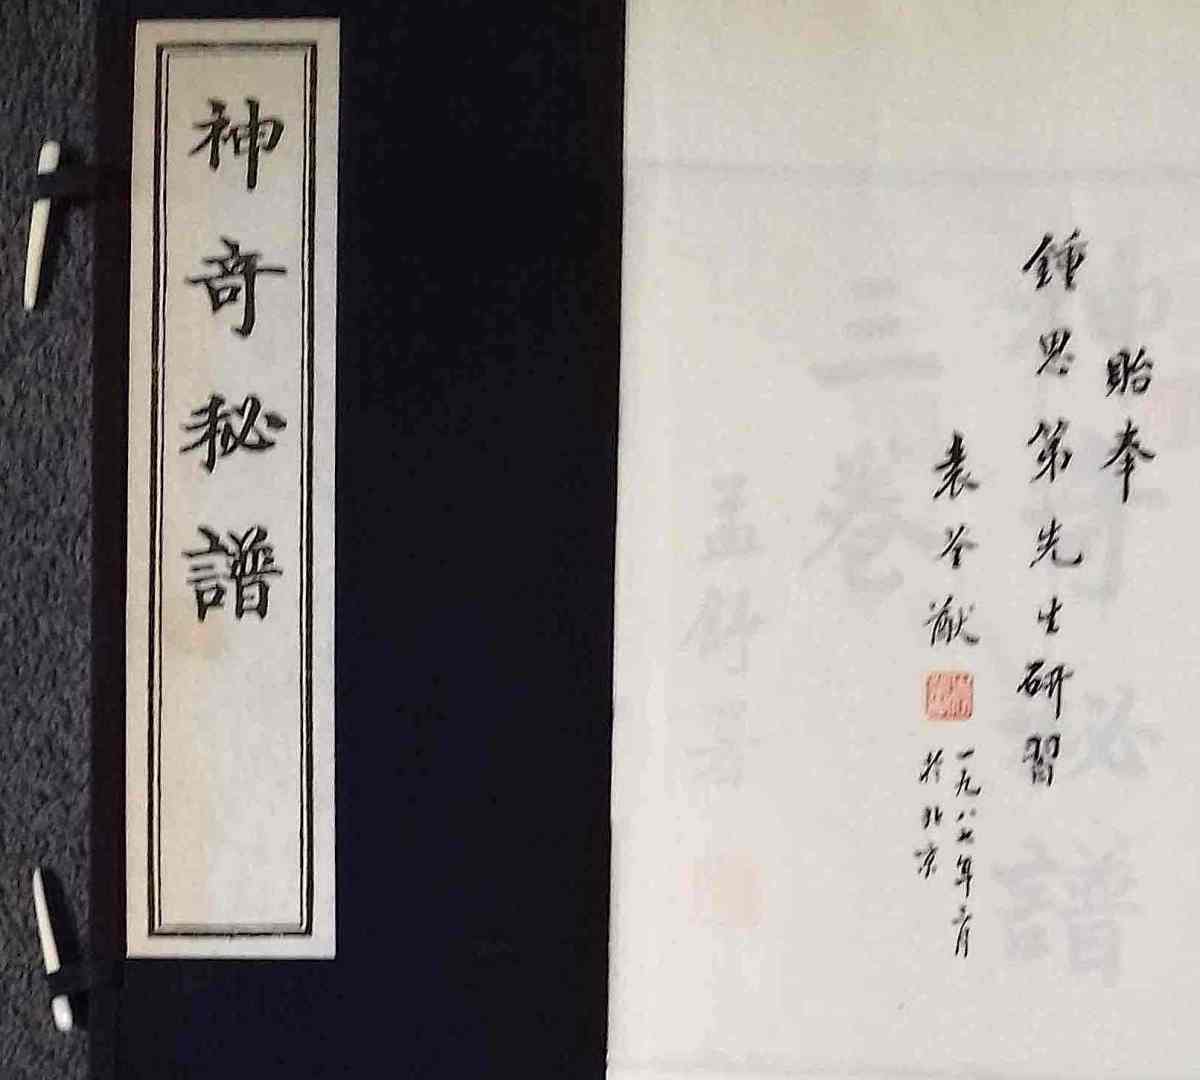 神奇秘譜
貽奉
鍾思第先生研習
袁荃猷
一九八七年三月
於北京
神奇秘譜
三卷
孟舒署